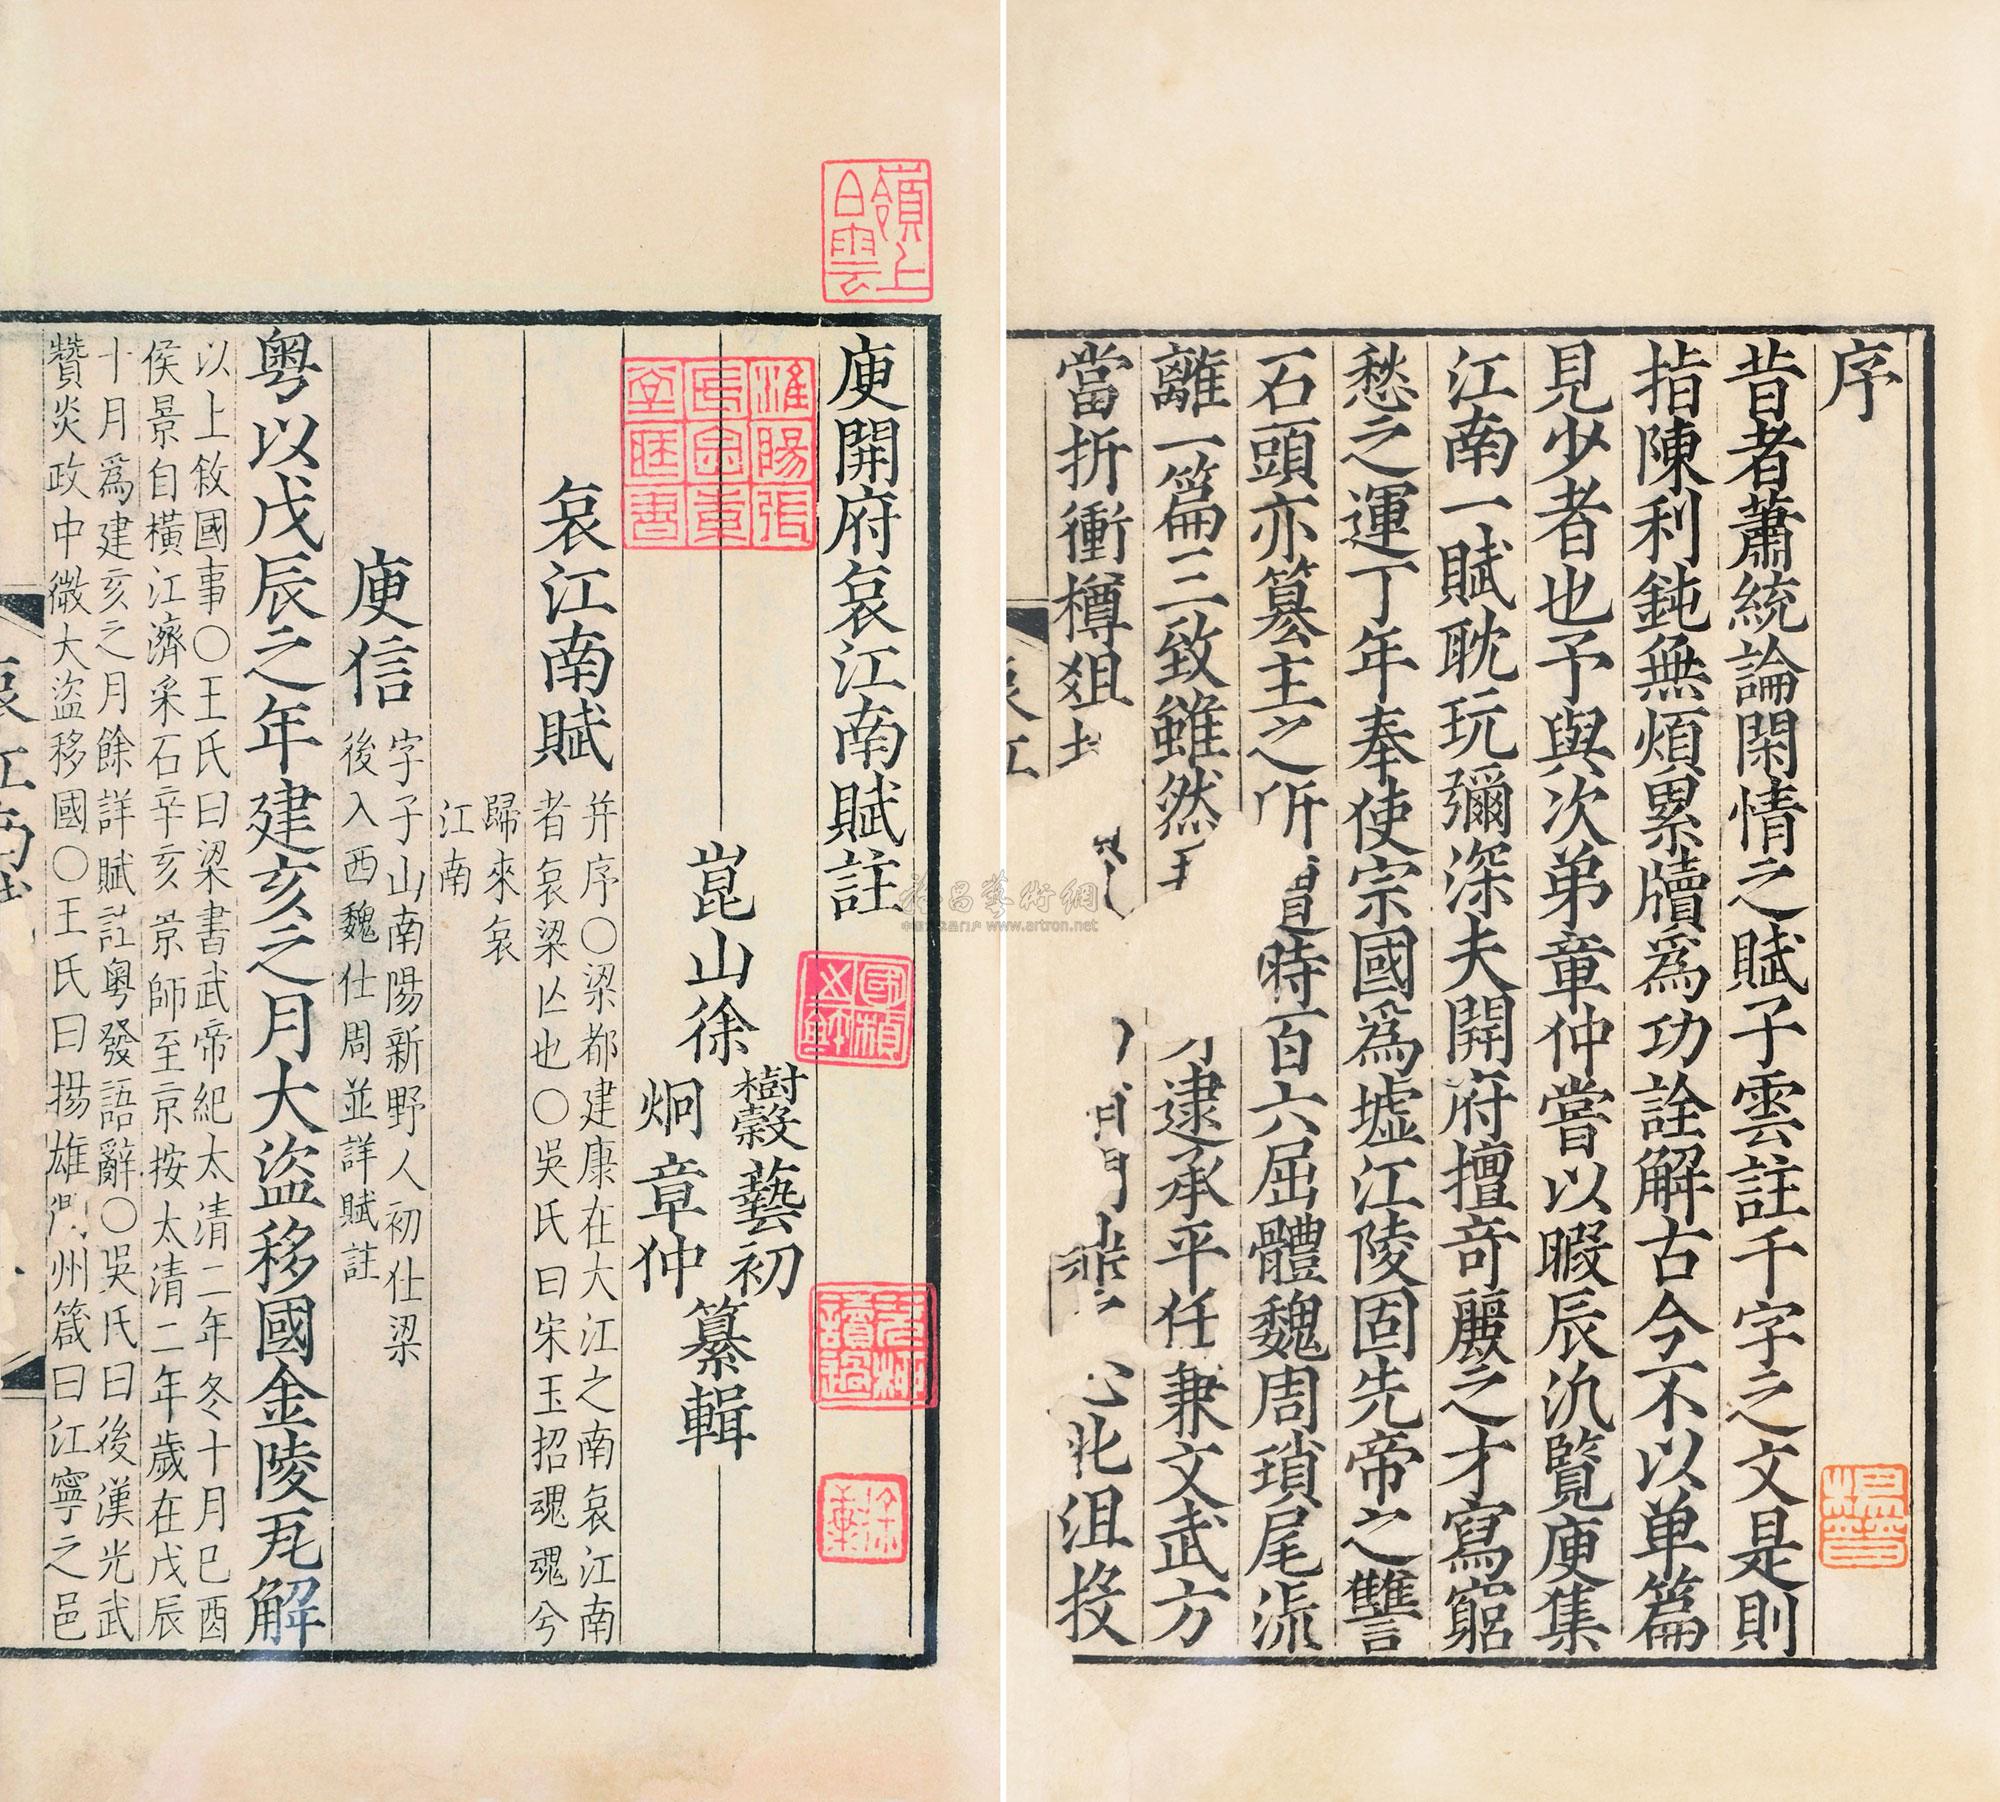 序
昔者蕭統論閑情之賦子雲註千字之文是則
指陳利鈍無煩累牘爲功詮解古今不以单篇
見少者也予與次弟章仲嘗以暇辰汎覽庾集
江南一賦耽玩彌深夫開府擅奇麗之才寫窮
愁之運丁年奉使宗國爲墟江陵固先帝之讐
石頭亦篡主之所 時百六屈體魏周瑣尾流
離一篇三致雖然 逮承平任兼文武方
當折衝樽俎 北沮投
哀江
庾開府哀江南賦註
崑山徐
樹穀藝初
炯章仲
纂輯
哀江南賦
并序○梁都建康在大江之南哀江南
者哀梁亾也○吳氏曰宋玉招魂魂兮
歸來哀
江南
庾信
字子山南陽新野人初仕梁
後入西魏仕周並詳賦註
粤以戊辰之年建亥之月大盜移國金陵瓦解
以上敘國事○王氏曰梁書武帝紀太清二年冬十月巳酉
侯景自橫江濟采石辛亥景師至京按太清二年歲在戊辰
十月爲建亥之月餘詳賦註粤發語辭○吳氏曰後漢光武
贊炎政中微大盜移國○王氏曰揚雄 州箴曰江寧之邑
哀江南
嶺上白雲
www.artron.net